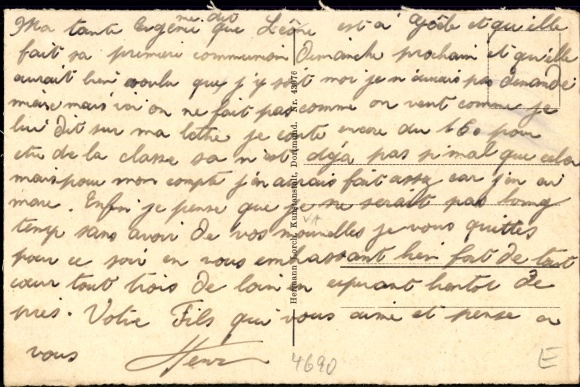 me dit
Ma tante Eugénie que Léone est a Göde et qu'elle
fait sa premiere communion Dimanche prochain et qu'elle
aurait bien voulu que j'y soit moi je n'aurais pas demandé
mieux mais ici on ne fait pas comme on veut comme je
lui dit sur ma lettre je compte encore du 160 pour
etre de la classe sa n'est déjà pas si mal que cela
mais pour mon compte j'en aurais fait assez car j'en ai
mare. Enfin je pense que je ne serait pas long
temps sans avoir de vos nouvelles je vous quittes
pour ce soir en vous embrassant bien fort de tout
cœur tout trois de loin en esperant bientot de
pres. Votre Fils qui vous aime et pense a
vous
Hermann Lorch, Kunstanstalt, Dortmund. Nr. 43076
4690
E